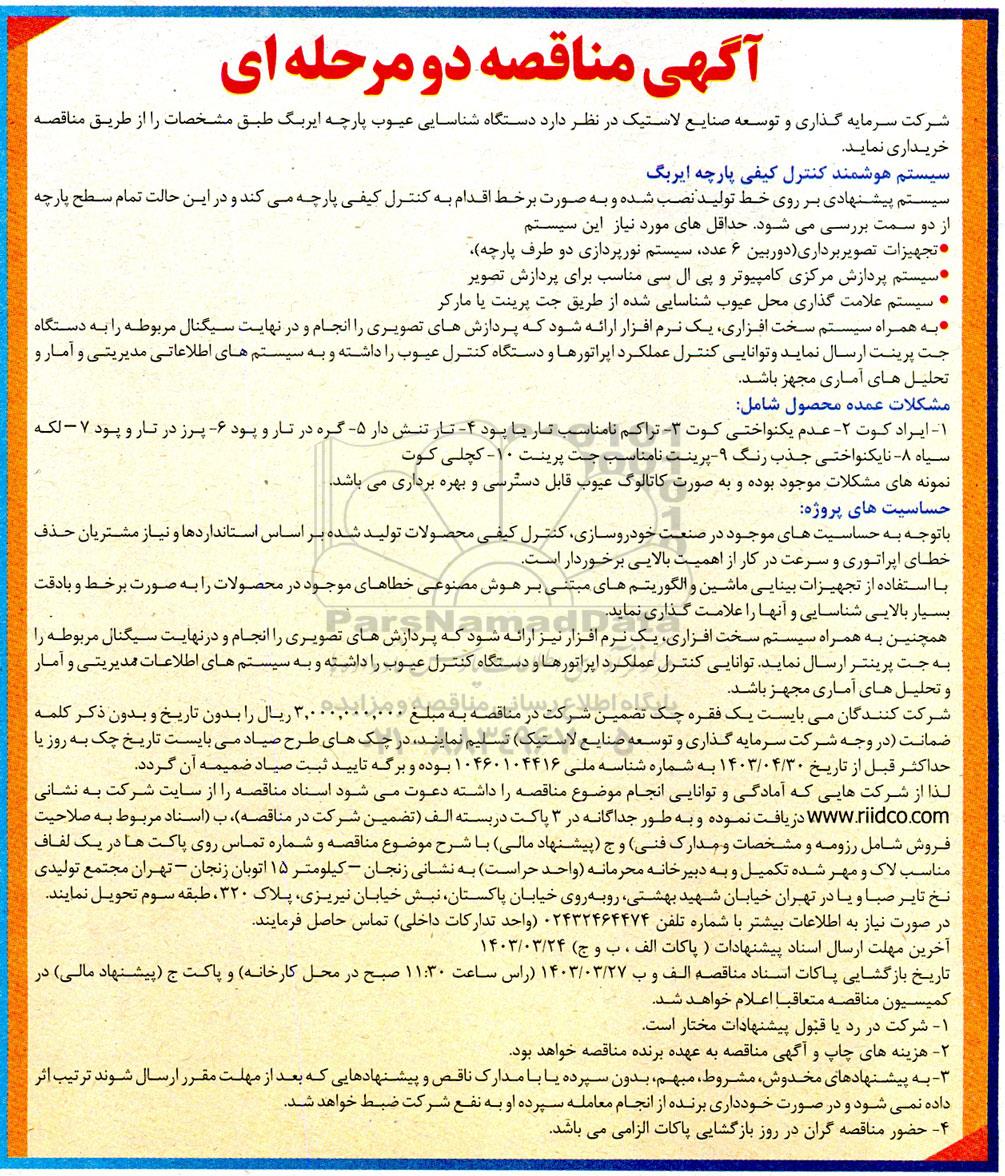 آگهی مناقصه دو مرحله ای
شرکت سرمایه گذاری و توسعه صنایع لاستیک در نظر دارد دستگاه شناسایی عیوب پارچه ایربگ طبق مشخصات را از طریق مناقصه
خریداری نماید.
سیستم هوشمند کنترل کیفی پارچه ایربگ
سیستم پیشنهادی بر روی خط تولید نصب شده و به صورت برخط اقدام به کنترل کیفی پارچه می کند و در این حالت تمام سطح پارچه
از دو سمت بررسی می شود. حداقل های مورد نیاز این سیستم
●تجهیزات تصویربرداری(دوربین ۶ عدد، سیستم نورپردازی دو طرف پارچه)،
●سیستم پردازش مرکزی کامپیوتر و پی ال سی مناسب برای پردازش تصویر
● سیستم علامت گذاری محل عیوب شناسایی شده از طریق جت پرینت یا مارکر
●به همراه سیستم سخت افزاری، یک نرم افزار ارائه شود که پردازش های تصویری را انجام و در نهایت سیگنال مربوطه را به دستگاه
جت پرینت ارسال نماید و توانایی کنترل عملکرد اپراتورها و دستگاه کنترل عیوب را داشته و به سیستم های اطلاعاتی مدیریتی و آمار و
تحلیل های آماری مجهز باشد.
مشکلات عمده محصول شامل:
۱- ایراد کوت ۲- عدم یکنواختی کوت ۳- تراکم نامناسب تار یا پود ۴- تار تنش دار ۵- گره در تار و پود ۶- پرز در تار و پود ۷ – لکه
سیاه ۸- نایکنواختی جذب رنگ ۹-پرینت نامناسب جت پرینت ۱۰- کچلی کوت
نمونه های مشکلات موجود بوده و به صورت کاتالوگ عیوب قابل دسترسی و بهره برداری می باشد.
حساسیت های پروژه:
باتوجه به حساسیت های موجود در صنعت خودروسازی، کنترل کیفی محصولات تولید شده بر اساس استانداردها و نیاز مشتریان حذف
خطای اپراتوری و سرعت در کار از اهمیت بالایی برخوردار است.
با استفاده از تجهیزات بینایی ماشین و الگوریتم های مبتنی بر هوش مصنوعی خطاهای موجود در محصولات را به صورت برخط و بادقت
بسیار بالایی شناسایی و آنها را علامت گذاری نماید.
همچنین به همراه سیستم سخت افزاری، یک نرم افزار نیز ارائه شود که پردازش های تصویری را انجام و درنهایت سیگنال مربوطه را
به جت پرینتر ارسال نماید. توانایی کنترل عملکرد اپراتورها و دستگاه کنترل عیوب را داشته و به سیستم های اطلاعات مدیریتی و آمار
و تحلیل های آماری مجهز باشد.
شرکت کنندگان می بایست یک فقره چک تضمین شرکت در مناقصه به مبلغ ۳,۰۰۰,۰۰۰,۰۰۰ ریال را بدون تاریخ و بدون ذکر کلمه
ضمانت (در وجه شرکت سرمایه گذاری و توسعه صنایع لاستیک) تسلیم نمایند، در چک های طرح صیاد می بایست تاریخ چک به روز یا
حداکثر قبل از تاریخ ۱۴۰۳/۰۴/۳۰ به شماره شناسه ملی ۱۰۴۶۰۱۰۴۴۱۶ بوده و برگه تایید ثبت صیاد ضمیمه آن گردد.
لذا از شرکت هایی که آمادگی و توانایی انجام موضوع مناقصه را داشته دعوت می شود اسناد مناقصه را از سایت شرکت به نشانی
www.riidco.com دریافت نموده و به طور جداگانه در ۳ پاکت دربسته الف (تضمین شرکت در مناقصه)، ب (اسناد مربوط به صلاحیت
فروش شامل رزومه و مشخصات و مدارک فنی) و ج (پیشنهاد مالی) با شرح موضوع مناقصه و شماره تماس روی پاکت ها در یک لفاف
مناسب لاک و مهر شده تکمیل و به دبیرخانه محرمانه (واحد حراست) به نشانی زنجان – کیلومتر ۱۵ اتوبان زنجان – تهران مجتمع تولیدی
نخ تایر صبا و یا در تهران خیابان شهید بهشتی، روبه‌روی خیابان پاکستان، نبش خیابان نیریزی، پلاک ۳۲۰، طبقه سوم تحویل نمایند.
در صورت نیاز به اطلاعات بیشتر با شماره تلفن ۰۲۴۳۲۴۶۴۴۷۴ (واحد تدارکات داخلی) تماس حاصل فرمایند.
آخرین مهلت ارسال اسناد پیشنهادات ( پاکات الف ، ب و ج) ۱۴۰۳/۰۳/۲۴
تاریخ بازگشایی پاکات اسناد مناقصه الف و ب ۱۴۰۳/۰۳/۲۷ (راس ساعت ۱۱:۳۰ صبح در محل کارخانه) و پاکت ج (پیشنهاد مالی) در
کمیسیون مناقصه متعاقبا اعلام خواهد شد.
۱- شرکت در رد یا قبول پیشنهادات مختار است.
۲- هزینه های چاپ و آگهی مناقصه به عهده برنده مناقصه خواهد بود.
۳- به پیشنهادهای مخدوش، مشروط، مبهم، بدون سپرده یا با مدارک ناقص و پیشنهادهایی که بعد از مهلت مقرر ارسال شوند ترتیب اثر
داده نمی شود و در صورت خودداری برنده از انجام معامله سپرده او به نفع شرکت ضبط خواهد شد.
۴- حضور مناقصه گران در روز بازگشایی پاکات الزامی می باشد.
ParsNamadData
پایگاه اطلاع رسانی مناقصه و مزایده